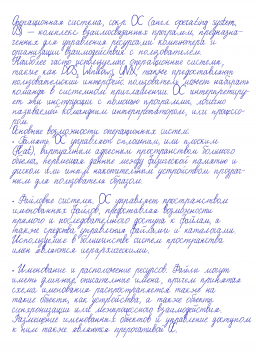 Операционная система, сокр. ОС (англ. operating system,
OS) — комплекс взаимосвязанных программ, предназна-
ченных для управления ресурсами компьютера и
организации взаимодействия с пользователем.
Наиболее часто используемые операционные системы,
такие как DOS, Windows, UNIX, также предоставляют
пользовательский интерфейс: пользователь может набирать
команды в системном приглашении ОС интерпретиру-
ет эти инструкции с помощью программы, обычно
называемой командным интерпретатором, или процессо-
ром.
Основные возможности операционных систем:
• Память. ОС управляет сплошным, или плоским
(flat), виртуальным адресным пространством большого
объема, перемещая данные между физической памятью и
диском или иным накопительным устройством прозрач-
ным для пользователя образом.
• Файловые системы. ОС управляет пространством
именованных файлов, предоставляя возможности
прямого и последовательного доступа к файлам, а
также средства управления файлами и каталогами.
Используемые в большинстве систем пространства
имен являются иерархическими.
• Именование и расположение ресурсов. Файлы могут
иметь длинные описательные имена, причем принятая
схема именования распространяется также на
такие объекты, как устройства, а также объекты
синхронизации или межпроцессного взаимодействия.
Размещение именованных объектов и управление доступом
к ним также являются прерогативой